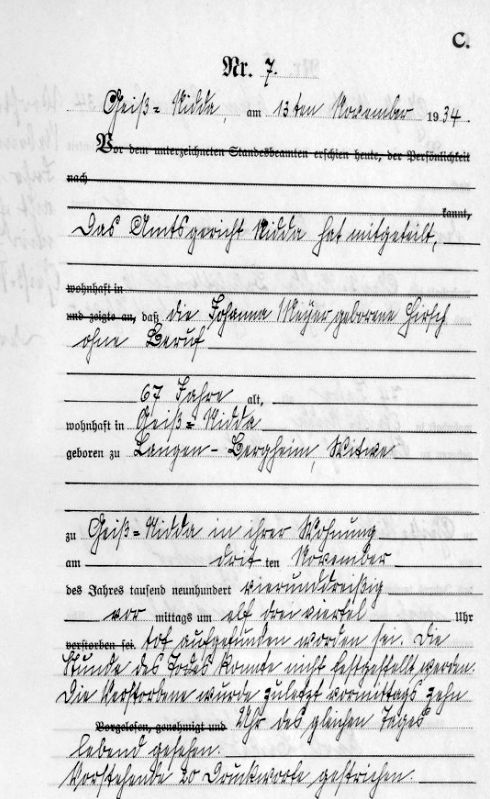 C.
Nr. 7.
Geiß-Nidda, am 13ten November 1934.
Vor dem unterzeichneten Standesbeamten erschien heute, der Persönlichkeit
nach
kannt,
Das Amtsgericht Nidda hat mitgeteilt,
wohnhaft in
und zeigte an, daß die Johanna Meyer geborene Hirsch
ohne Beruf
67 Jahre alt,
wohnhaft in Geiß-Nidda
geboren zu Langen-Bergheim, Witwe
zu Geiß-Nidda in ihrer Wohnung
am drit ten November
des Jahres tausend neunhundert vierunddreißig
vor mittags um elf drei viertel Uhr
verstorben sei. tot aufgefunden worden sei. Die
Stunde des Todes konnte nicht festgestellt werden.
Die Verstorbene wurde zuletzt vormittags zehn
Vorgelesen, genehmigt und Uhr des gleichen Tages
lebend gesehen.
Vorstehende 20 Druckworte gestrichen.